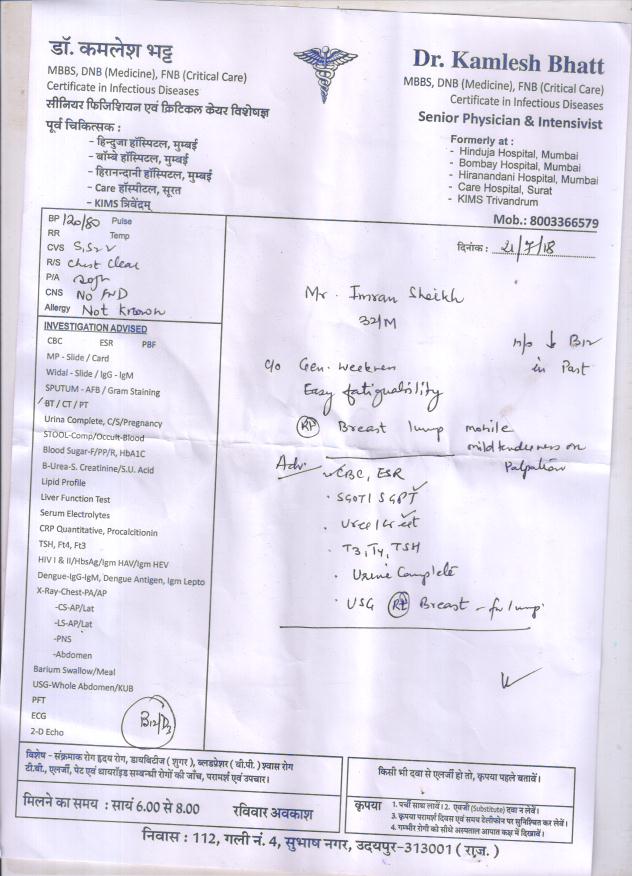 डॉ. कमलेश भट्ट
MBBS, DNB (Medicine), FNB (Critical Care)
Certificate in Infectious Diseases
सीनियर फिजिशियन एवं क्रिटिकल केयर विशेषज्ञ
पूर्व चिकित्सक :
- हिन्दुजा हॉस्पिटल, मुम्बई
- बॉम्बे हॉस्पिटल, मुम्बई
- हिरानन्दानी हॉस्पिटल, मुम्बई
- Care हॉस्पीटल, सूरत
- KIMS त्रिवेंद्रम्
Dr. Kamlesh Bhatt
MBBS, DNB (Medicine), FNB (Critical Care)
Certificate in Infectious Diseases
Senior Physician & Intensivist
Formerly at :
- Hinduja Hospital, Mumbai
- Bombay Hospital, Mumbai
- Hiranandani Hospital, Mumbai
- Care Hospital, Surat
- KIMS Trivandrum
Mob.: 8003366579
BP 120/80 Pulse
RR Temp
CVS S1S2 ✓
R/S Chest Clear
P/A Soft
CNS No FND
Allergy Not Known
INVESTIGATION ADVISED
CBC ESR PBF
MP - Slide / Card
Widal - Slide / IgG - IgM
SPUTUM - AFB / Gram Staining
BT / CT / PT
Urina Complete, C/S/Pregnancy
STOOL-Comp/Occult-Blood
Blood Sugar-F/PP/R, HbA1C
B-Urea-S. Creatinine/S.U. Acid
Lipid Profile
Liver Function Test
Serum Electrolytes
CRP Quantitative, Procalcitonin
TSH, Ft4, Ft3
HIV I & II/HbsAg/Igm HAV/Igm HEV
Dengue-IgG-IgM, Dengue Antigen, Igm Lepto
X-Ray-Chest-PA/AP
-CS-AP/Lat
-LS-AP/Lat
-PNS
-Abdomen
Barium Swallow/Meal
USG-Whole Abdomen/KUB
PFT
ECG
2-D Echo
B12/D3
दिनांक : 21/7/18
Mr. Imran Sheikh
32/M
H/o ↓ B12
in Past
C/o Gen. Weakness
Easy fatiguability
Rt Breast lump mobile
mild tenderness on
Palpation
Adv.
CBC, ESR
· SGOT/SGPT
· Urea/Creat
· T3, T4, TSH
· Urine Complete
· USG Rt Breast - for lump
विशेष - संक्रमाक रोग हृदय रोग, डायबिटीज ( शुगर ), ब्लडप्रेशर ( बी.पी. ) श्वास रोग
टी.बी., एलर्जी, पेट एवं थायरॉइड सम्बन्धी रोगों की जाँच, परामर्श एवं उपचार।
मिलने का समय : सायं 6.00 से 8.00 रविवार अवकाश
किसी भी दवा से एलर्जी हो तो, कृपया पहले बतावें।
कृपया
1. पर्ची साथ लावें। 2. एवजी (Substitute) दवा न लेवें।
3. कृपया परामर्श दिवस एवं समय टेलीफोन पर सुनिश्चित कर लेवें।
4. गम्भीर रोगी को सीधे अस्पताल आपात कक्ष में दिखावें।
निवास : 112, गली नं. 4, सुभाष नगर, उदयपुर-313001 ( राज. )